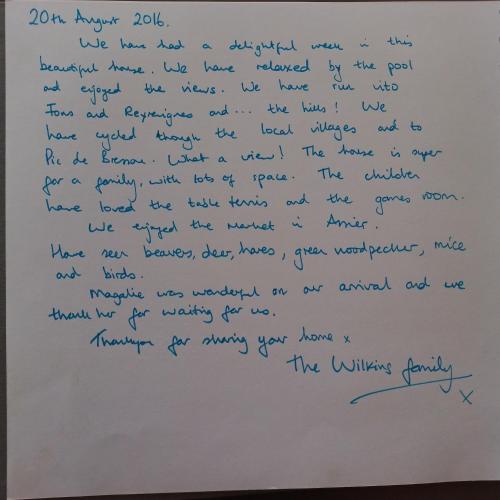 20th August 2016.
We have had a delightful week in this
beautiful house. We have relaxed by the pool
and enjoyed the views. We have run into
Fons and Reyrevignes and... the hills! We
have cycled though the local villages and to
Pic de What a view! The house is super
for a family, with lots of space. The children
have loved the table tennis and the games room.
We enjoyed the market in Assier.
Have seen beavers, deer, hares, green woodpecker, mice
and birds.
Magalie was wonderful on our arrival and we
thank her for waiting for us.
Thankyou for sharing your home x
The Wilkins family
x